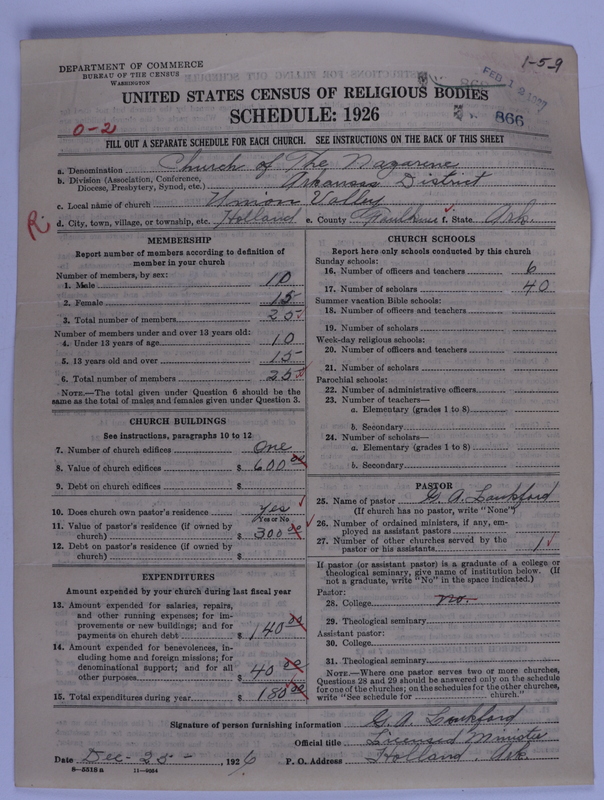 1-5-9
DEPARTMENT OF COMMERCE
BUREAU OF THE CENSUS
WASHINGTON
FEB 12 1927
UNITED STATES CENSUS OF RELIGIOUS BODIES
SCHEDULE: 1926
866
0-2
FILL OUT A SEPARATE SCHEDULE FOR EACH CHURCH. SEE INSTRUCTIONS ON THE BACK OF THIS SHEET
a. Denomination Church of The Nazarene
b. Division (Association, Conference, Diocese, Presbytery, Synod, etc.) Arkansas District
c. Local name of church Union Valley
R. d. City, town, village, or township, etc. Holland e. County Faulkner f. State Ark.
MEMBERSHIP
Report number of members according to definition of
member in your church
Number of members, by sex:
1. Male 10
2. Female 15
3. Total number of members 25
Number of members under and over 13 years old:
4. Under 13 years of age 10
5. 13 years old and over 15
6. Total number of members 25
NOTE.—The total given under Question 6 should be the
same as the total of males and females given under Question 3.
CHURCH BUILDINGS
See instructions, paragraphs 10 to 12
7. Number of church edifices One
8. Value of church edifices $ 600 00
9. Debt on church edifices $
10. Does church own pastor's residence yes
Yes or No
11. Value of pastor's residence (if owned by
church) $ 300 00
12. Debt on pastor's residence (if owned by
church) $
EXPENDITURES
Amount expended by your church during last fiscal year
13. Amount expended for salaries, repairs,
and other running expenses; for im-
provements or new buildings; and for
payments on church debt $ 140 00
14. Amount expended for benevolences, in-
cluding home and foreign missions; for
denominational support; and for all
other purposes $ 40 00
15. Total expenditures during year $ 180 00
CHURCH SCHOOLS
Report here only schools conducted by this church
Sunday schools:
16. Number of officers and teachers 6
17. Number of scholars 40
Summer vacation Bible schools:
18. Number of officers and teachers
19. Number of scholars
Week-day religious schools:
20. Number of officers and teachers
21. Number of scholars
Parochial schools:
22. Number of administrative officers
23. Number of teachers—
a. Elementary (grades 1 to 8)
b. Secondary
24. Number of scholars—
a. Elementary (grades 1 to 8)
b. Secondary
PASTOR
25. Name of pastor G. A. Lankford
(If church has no pastor, write "None")
26. Number of ordained ministers, if any, em-
ployed as assistant pastors
27. Number of other churches served by the
pastor or his assistants 1
If pastor (or assistant pastor) is a graduate of a college or
theological seminary, give name of institution below. (If
not a graduate, write "No" in the space indicated.)
Pastor:
28. College no.
29. Theological seminary
Assistant pastor:
30. College
31. Theological seminary
NOTE.—Where one pastor serves two or more churches,
Questions 28 and 29 should be answered only on the schedule
for one of the churches; on the schedules for the other churches,
write "See schedule for church."
Signature of person furnishing information G. A. Lankford
Official title Licensed Minister
Date Dec-25-, 1926 P. O. Address Holland, Ark.
8-5518 a 11-9054